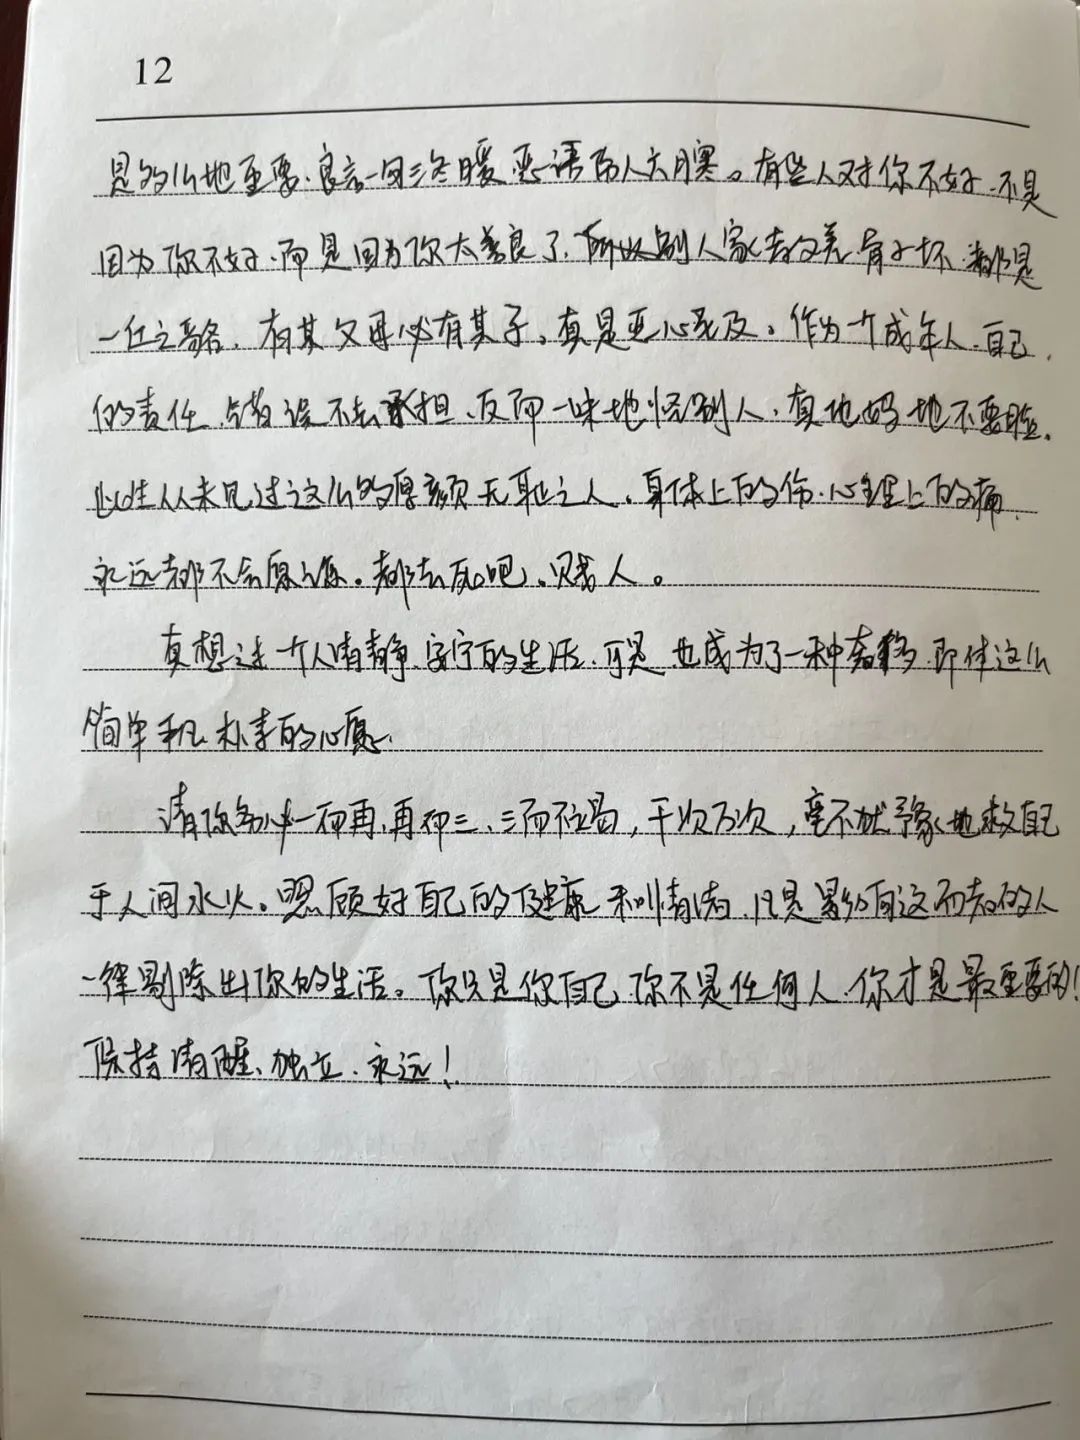 12
是多么地重要.良言一句三冬暖 恶语伤人六月寒。有些人对你不好.不是
因为你不好.而是因为你太善良了.所以别人家去 都是
一丘之貉.有其父母必有其子。真是恶心死及。作为一个成年人.自己
的责任.错误不去承担.反而一味地怪别人.真他妈地不要脸.
此生从未见过这么的厚颜无耻之人.身体上的伤.心理上的痛.
永远都不会愿谅。都去死吧。贱人。
真想过一个人清静.安宁的生活.可是 也成为了一种奢移.即使这么
简单平凡.朴素的心愿.
请你务必一而再.再而三、三而不竭，千次万次，毫不犹豫地救自己
于人间水火。照顾好自己的健康和情绪.凡是影响这两者的人
一律剔除出你的生活。你只是你自己.你不是任何人.你才是最重要的!
保持清醒、独立.永远!